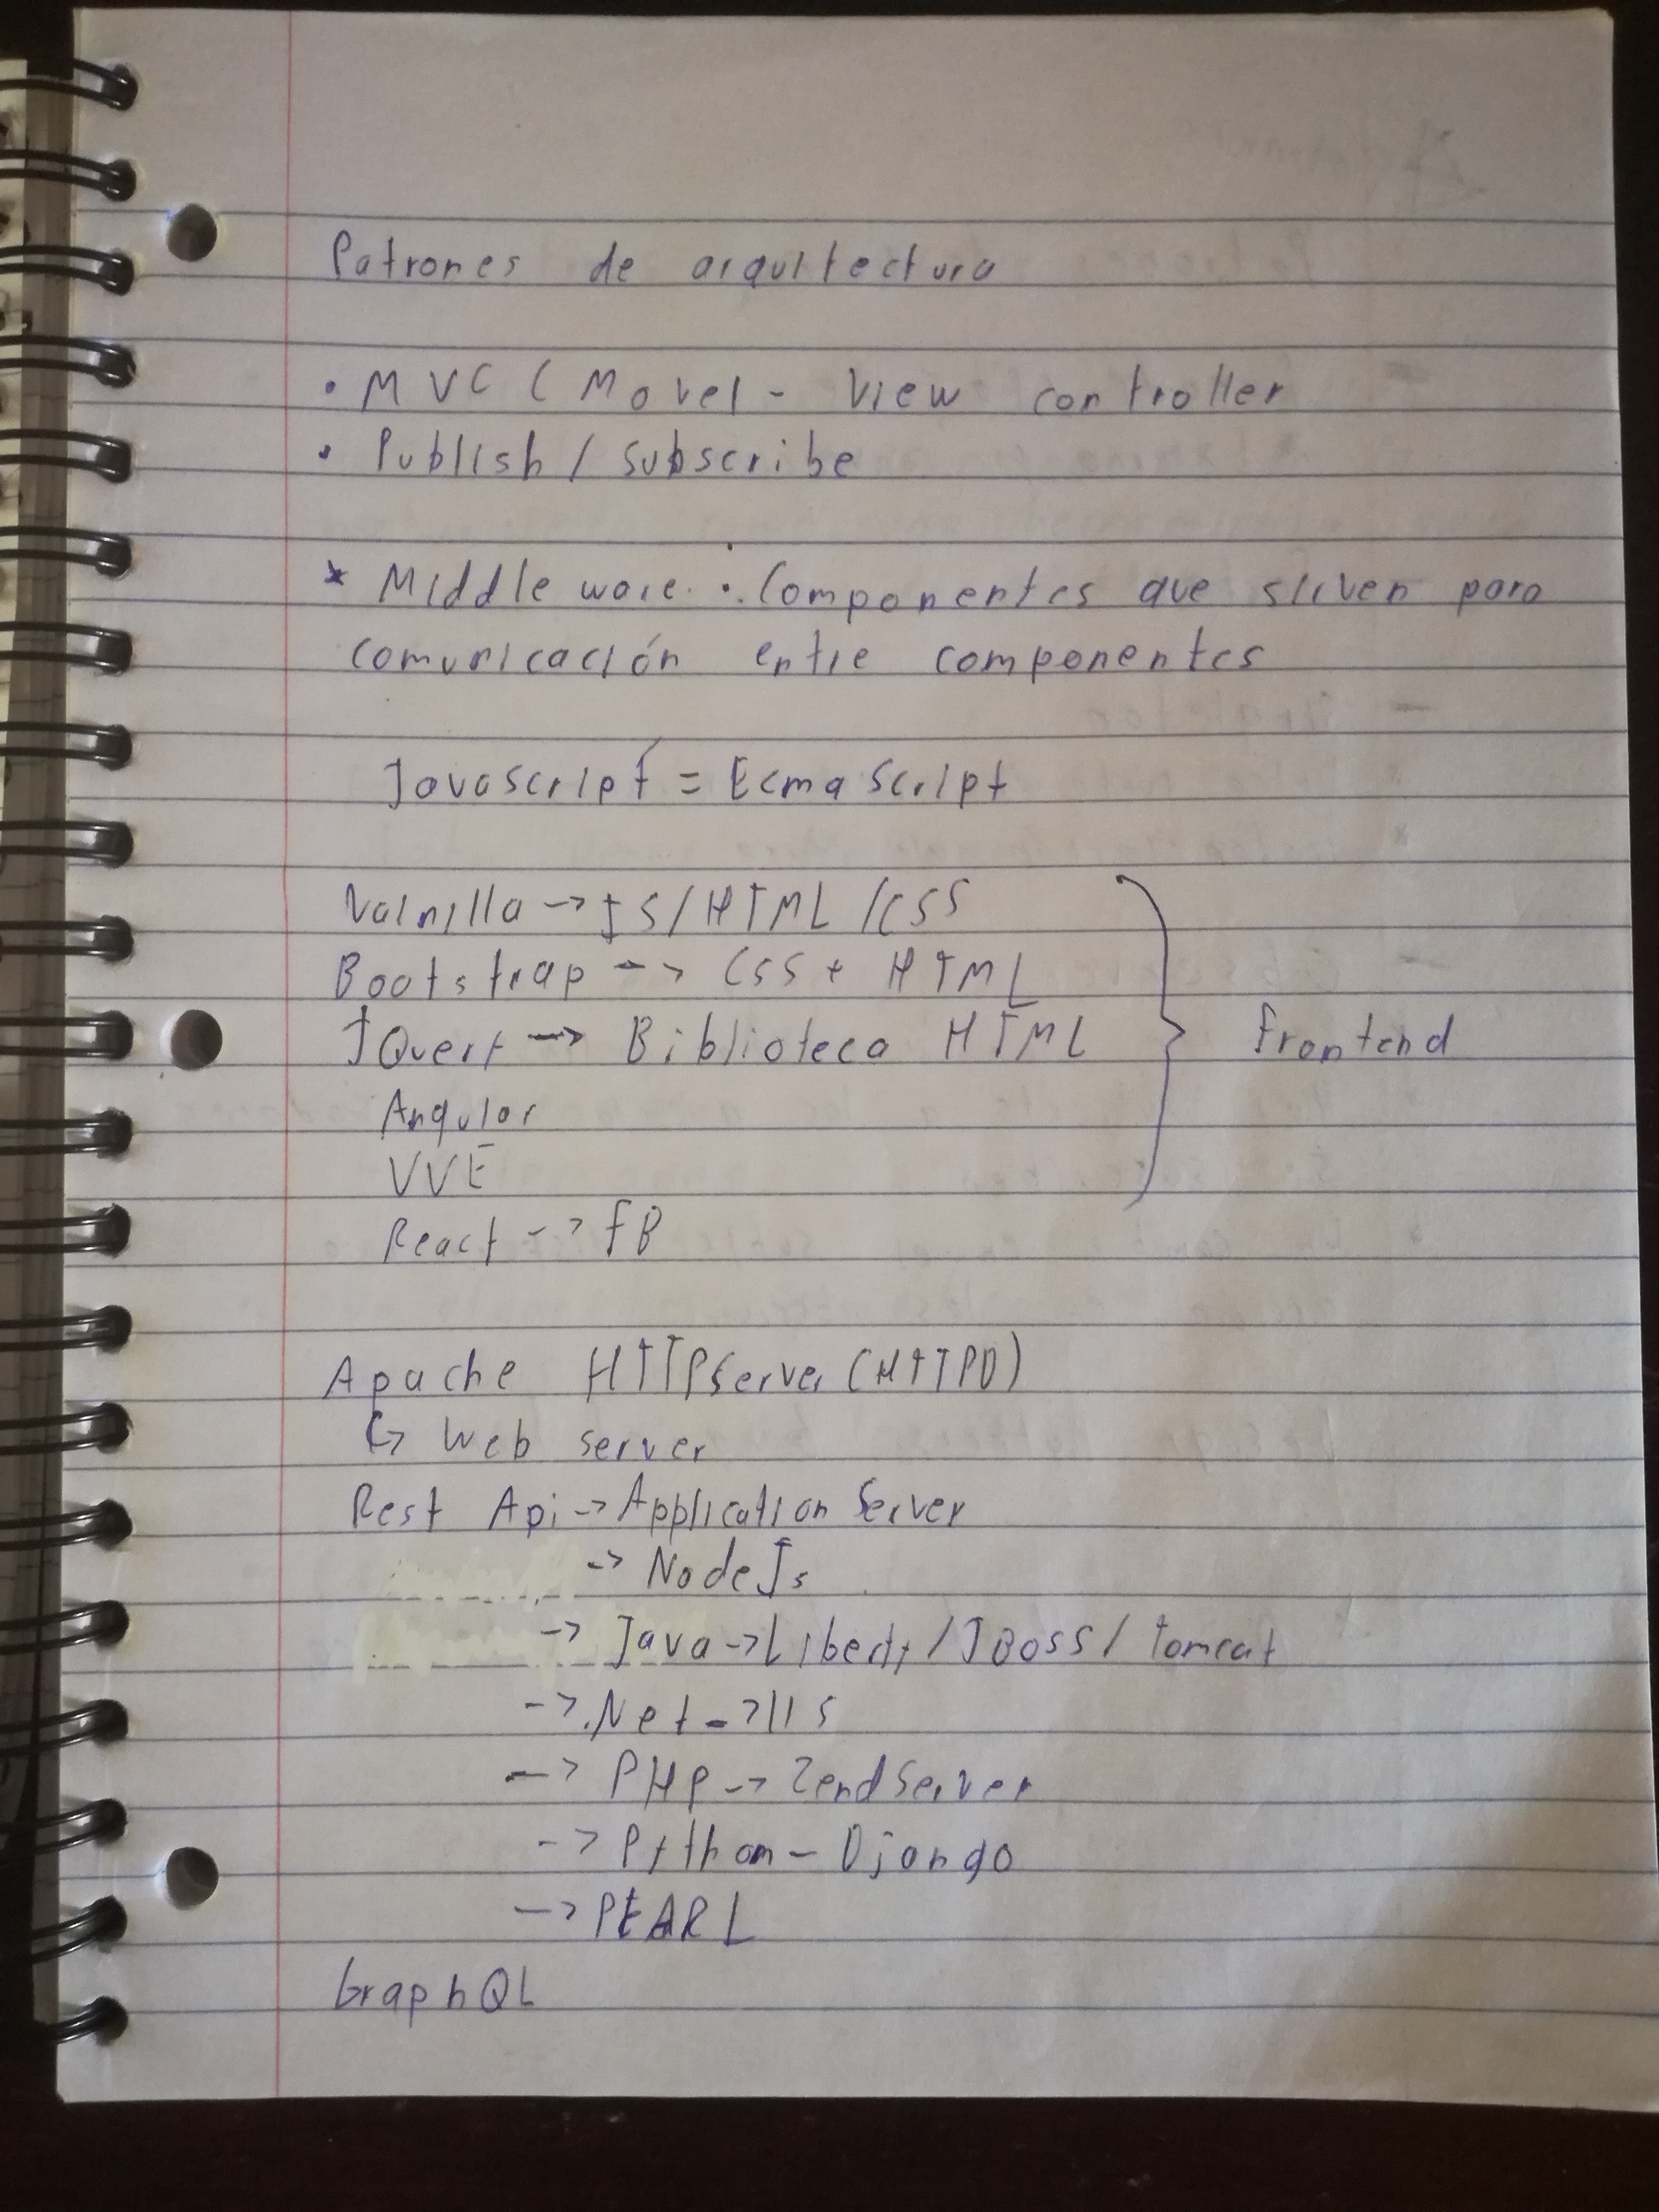 Patrones de arquitectura
• MVC ( Movel - View controller
• Publish / Subscribe
* Middle ware : Componentes que sirven para
comunicación entre componentes
Javascript = EcmaScript
Vainilla -> JS / HTML / CSS
Bootstrap -> CSS + HTML
JQuery -> Biblioteca HTML
Angular
VUE
React -> FB
frontend
Apache HTTPServer (HTTPD)
↳ Web server
Rest Api -> Application Server
-> NodeJs
-> Java -> Liberty / JBoss / tomcat
-> .Net -> IIS
-> PHP -> ZendServer
-> Python - Django
-> PEARL
GraphQL